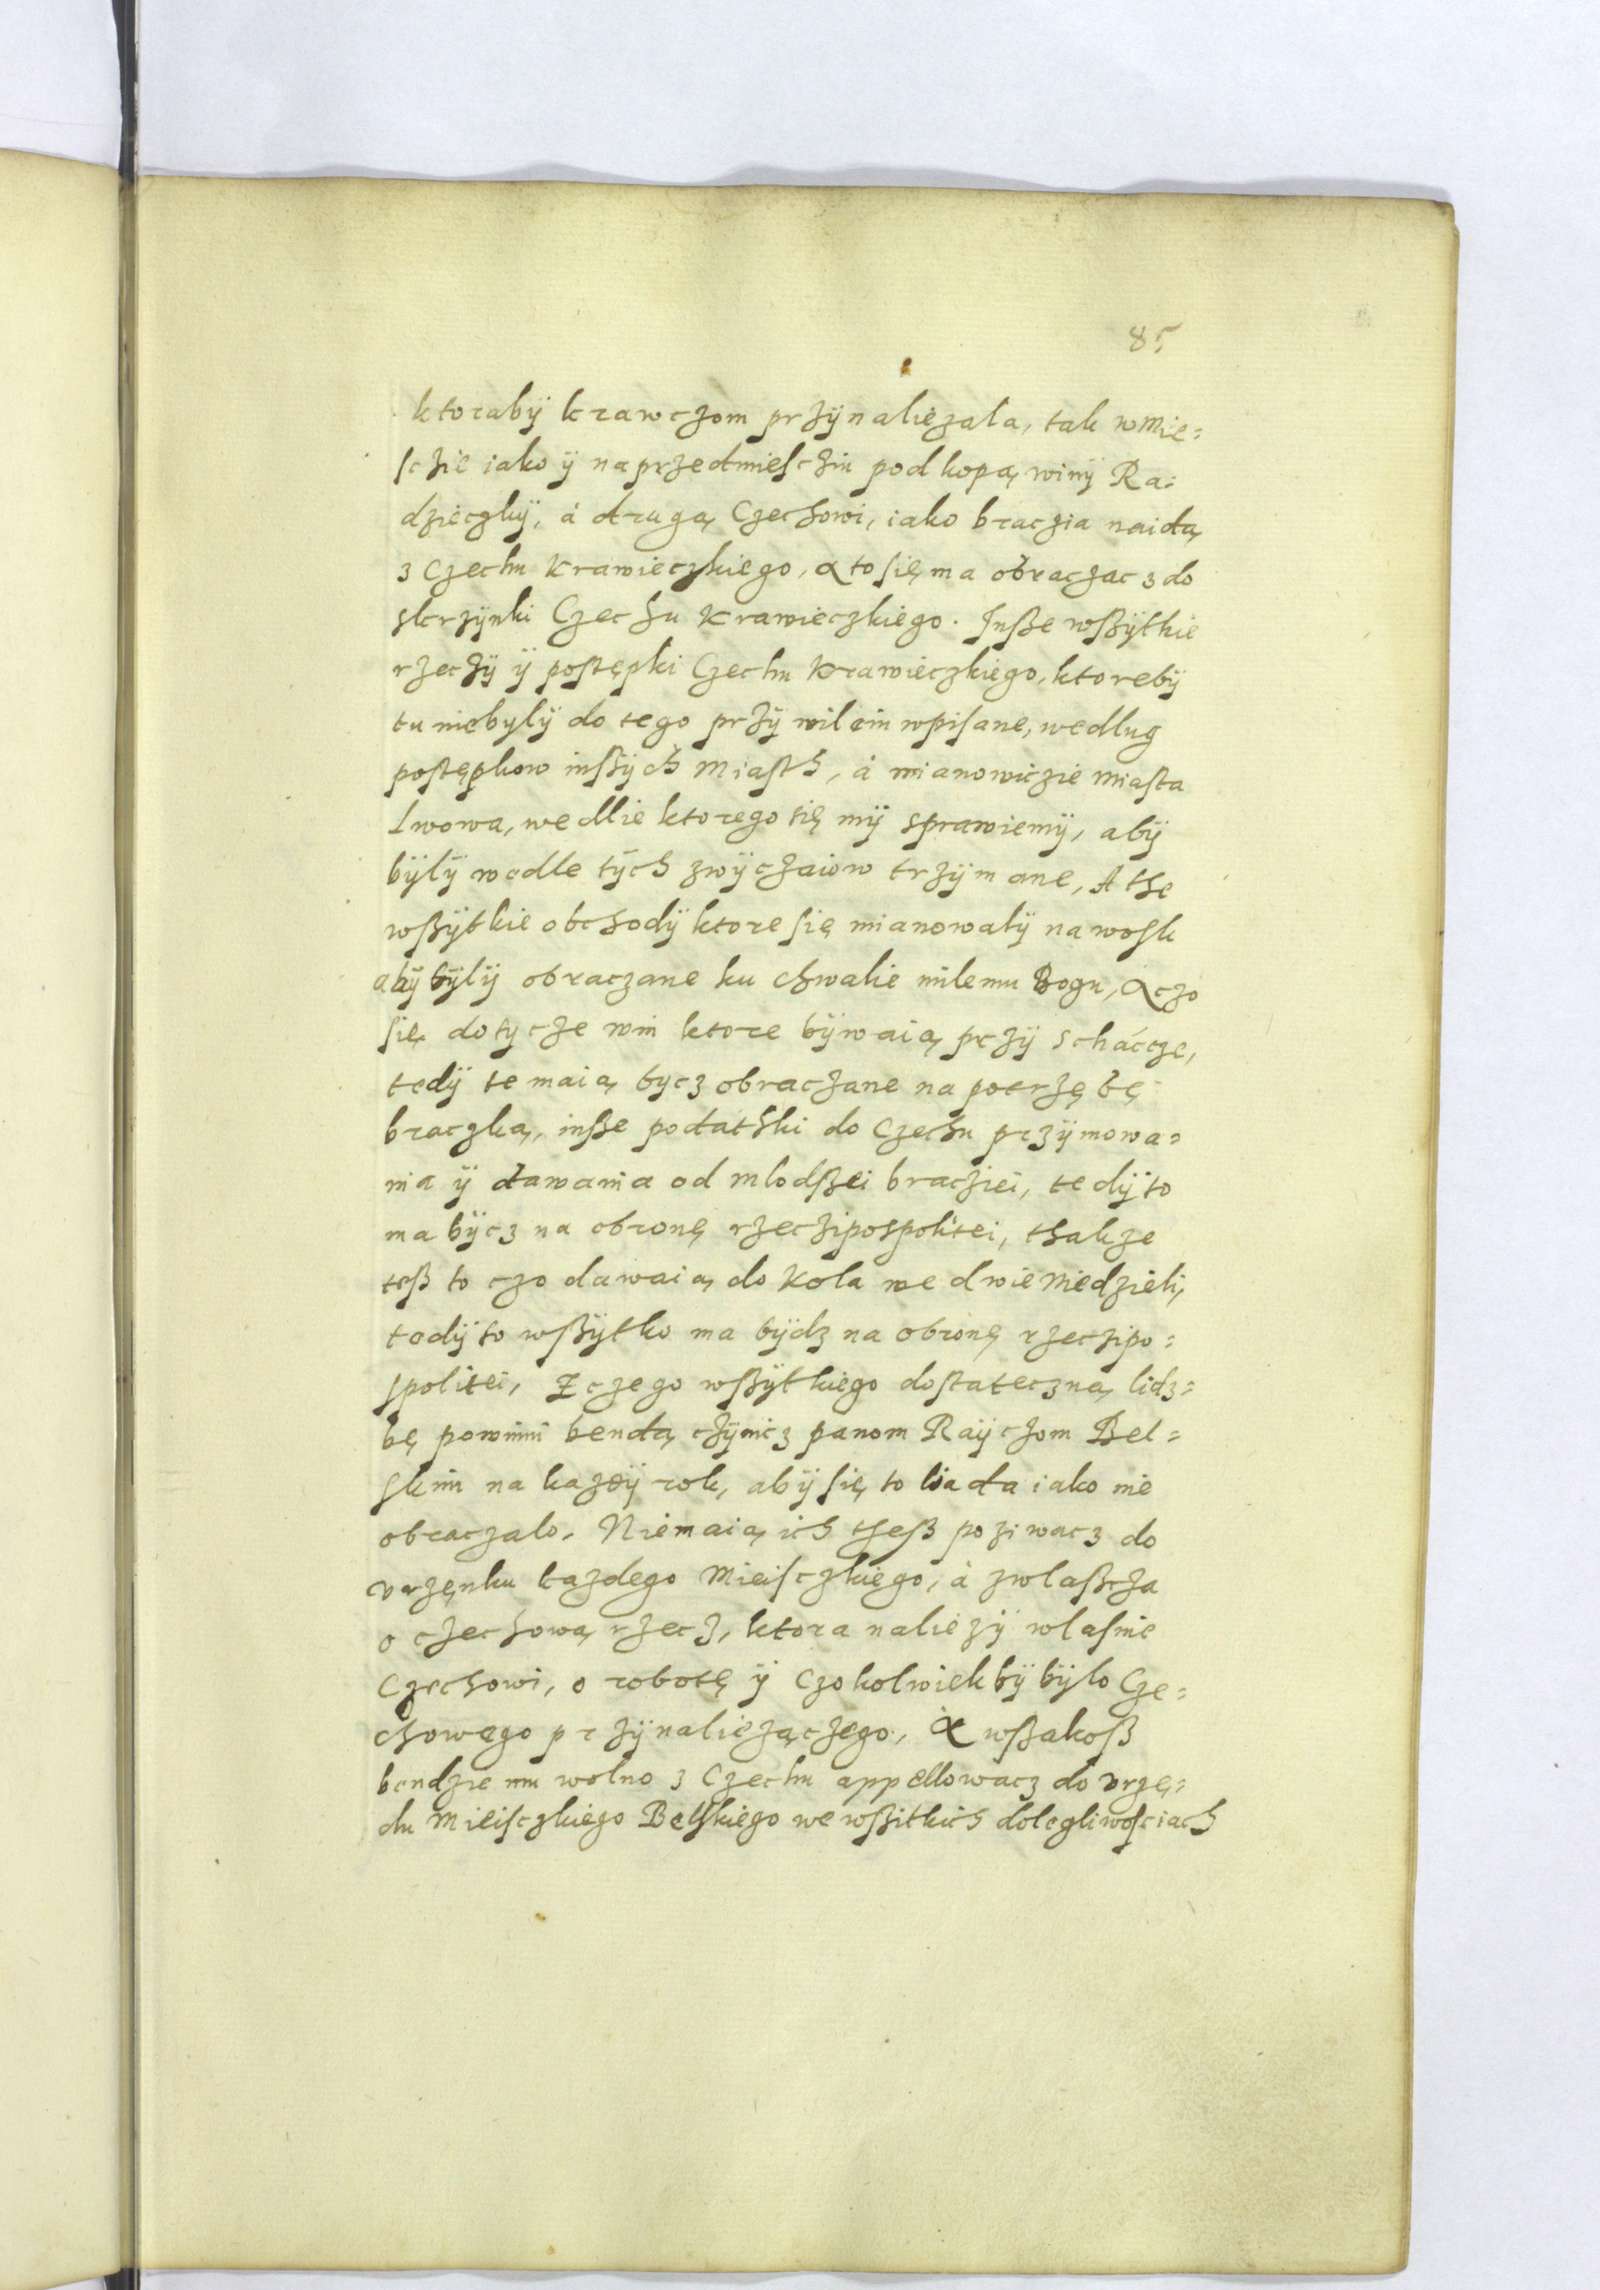 85
ktorabÿ krawczom przÿnaliezala, tak w Mie=
sczie iako ÿ na przedmiescziu pod kopą winÿ Ra=
dzieczkÿ, á drugą Czechowi, iako braczia naidą
z Czechu Krawieczkiego, A to się ma obraczacz do
skrzÿnki Czechu Krawieczkiego. Insze wszÿtkie
rzeczÿ ÿ postępki Czechu Krawieczkiego, ktorebÿ
tu niebylÿ do tego przÿwileiu wpisane, wedlug
postępkow inszÿch Miasth, á mianowiczie Miasta
Lwowa, wedlie ktorego się mÿ sprawiemÿ, abÿ
bÿlÿ wedle tÿch zwÿczaiow trzÿmane, A the
wszÿtkie obchodÿ ktore się mianowalÿ na wosk
abÿ bÿlÿ obraczane ku chwalie milemu Bogu, A czo
się dotycze win ktore bÿwaią przÿ scháccze,
tedÿ te maią bycz obraczane na potrzębę
braczką, insze podathki do Czechu przÿmowa=
nia ÿ dawania od mlodszei bracziei, tedÿ to
ma bÿcz na obronę rzeczipospolitei, thakze
tesz to czo dawaią do Kola we dwie Niedzieli,
tedÿ to wszÿtko ma bÿdz na obronę rzeczipo=
spolitei, Z czego wszÿtkiego dostateczną lidz=
bę powinni bendą czÿnicz panom Raÿczom Bel=
skim na kazdÿ rok, abÿ się to liada iako nie
obraczalo. Niemaią ich thesz poziwacz do
vrzęnku kazdego Mieisczkiego, á zwlaszcza
o czechową rzecz, ktora naliezÿ wlasnie
Czechowi, o robotę ÿ Czokolwiek bÿ bÿlo Cze=
chowego przÿnaliezączego, A wszakosz
bendzie mu wolno z Czechu appellowacz do vrzę=
du Mieisczkiego Belskiego we wszitkich dolegliwosciach